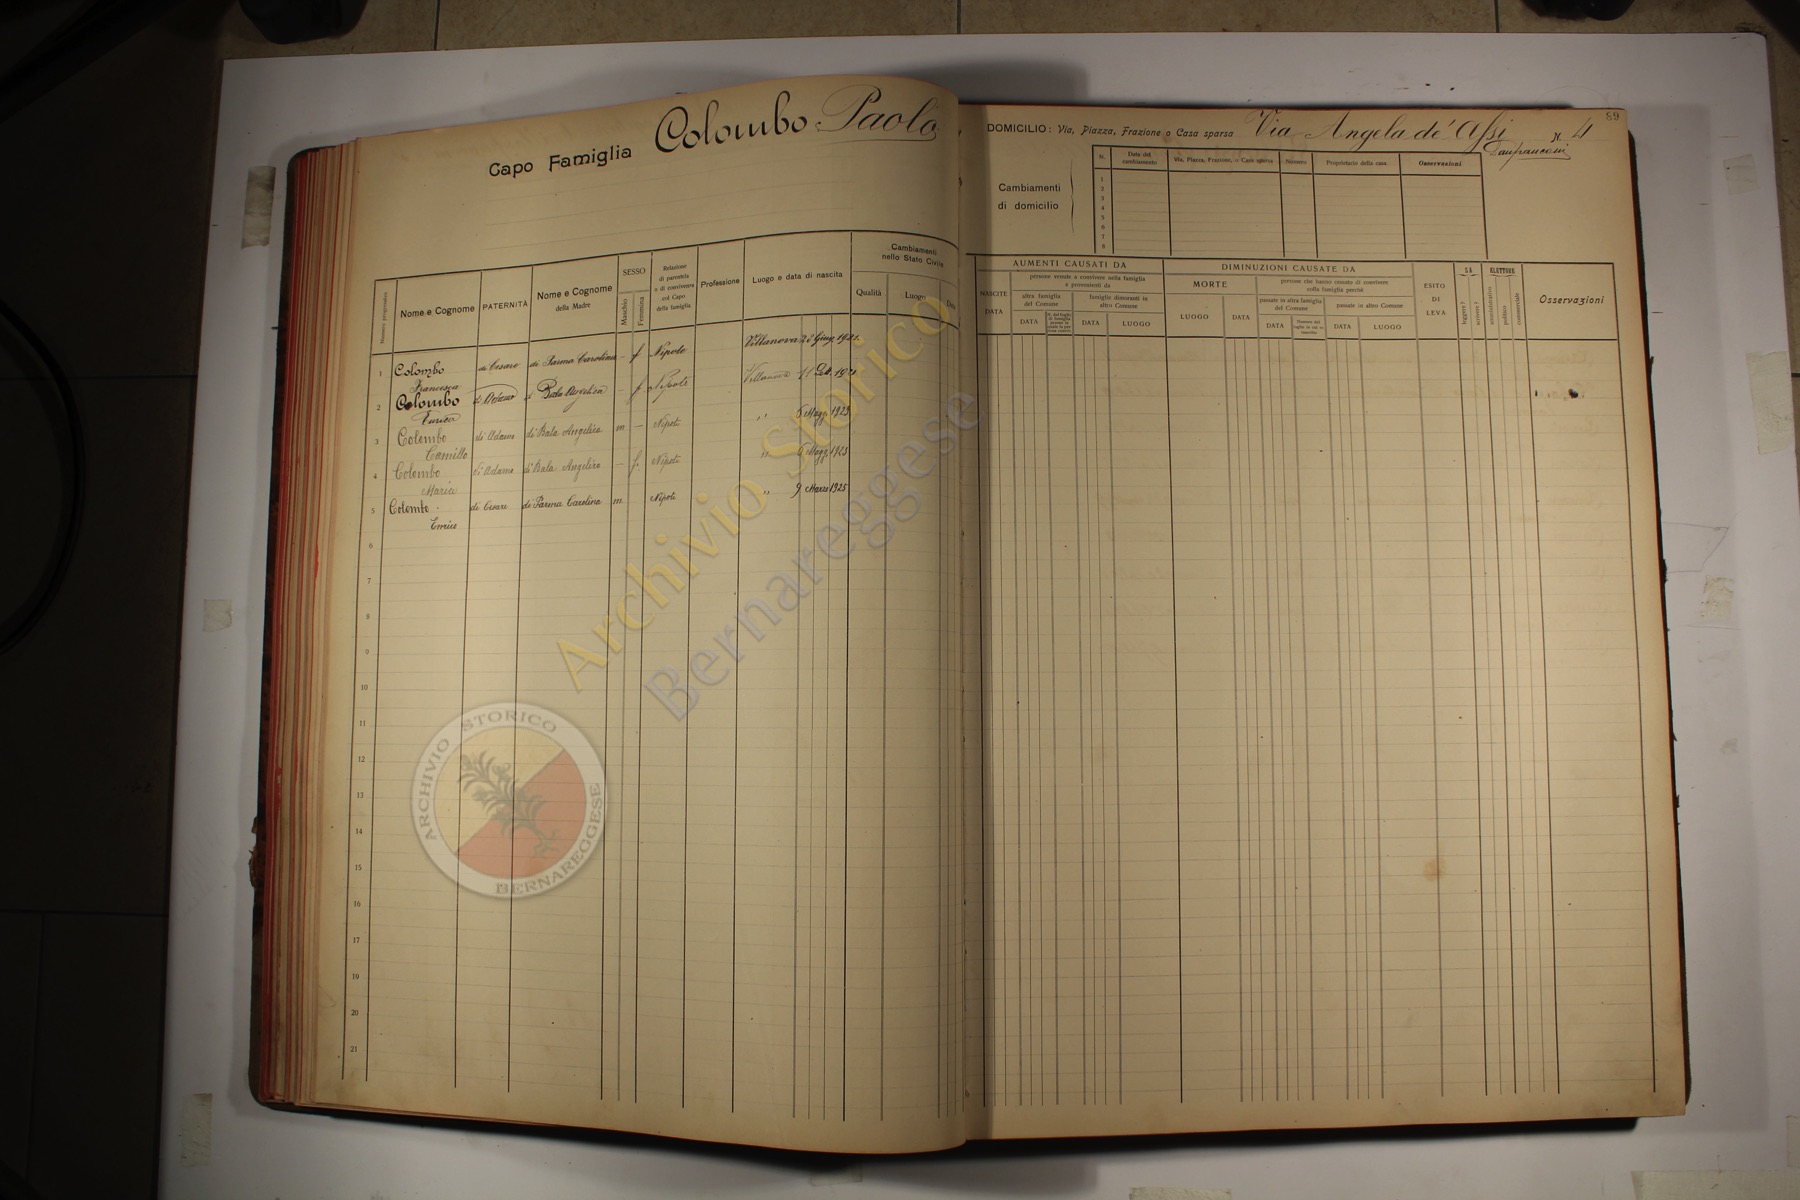 Capo Famiglia Colombo Paolo
89
DOMICILIO: Via, Piazza, Frazione o Casa sparsa Via Angela de' Assi N. 4
Lanfranconi
Cambiamenti di domicilio
N. Data del cambiamento Via, Piazza, Frazione, o Casa sparsa Numero Proprietario della casa Osservazioni
1
2
3
4
5
6
7
8
Numero progressivo
Nome e Cognome
PATERNITÀ
Nome e Cognome della Madre
SESSO
Maschio
Femmina
Relazione di parentela o di convivenza col Capo della famiglia
Professione
Luogo e data di nascita
Cambiamenti nello Stato Civile
Qualità
Luogo
Data
AUMENTI CAUSATI DA
NASCITE
DATA
persone venute a convivere nella famiglia e provenienti da
altra famiglia del Comune
DATA
famiglie dimoranti in altro Comune
DATA
LUOGO
DIMINUZIONI CAUSATE DA
MORTE
LUOGO
DATA
persone che hanno cessato di convivere colla famiglia perchè
passate in altra famiglia del Comune
DATA
passate in altro Comune
DATA
LUOGO
ESITO DI LEVA
SA
leggere?
scrivere?
ELETTORE
amministrativo
politico
commerciale
Osservazioni
1 Colombo di Cesare di Parma Carolina - f Nipote Villanova 1921.
Francesca
2 Colombo di Adamo di Bala Angelica - f Nipoti Villanova 11 1921
Enrica
3 Colombo di Adamo di Bala Angelica m - Nipoti " 6 Magg. 1923
Camillo
4 Colombo di Adamo di Bala Angelica - f. Nipoti " 6 Magg. 1923
Maria
5 Colombo di Cesare di Parma Carolina m Nipoti " 9 Marzo 1925
Enrico
6
7
8
9
10
11
12
13
14
15
16
17
19
20
21
Archivio Storico
Bernareggese
ARCHIVIO STORICO
BERNAREGGESE